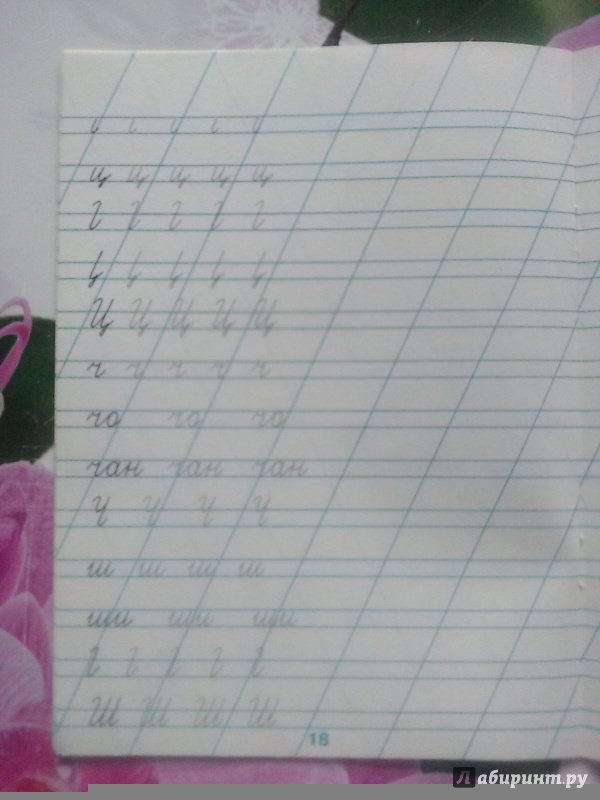 ц ц ц ц ц
Ц Ц Ц Ц Ц
ч ч ч ч ч
чо чо чо
чан чан чан
Ч Ч Ч Ч
ш ш ш ш
ши ши ши
Ш Ш Ш Ш
18
Лабиринт.ру